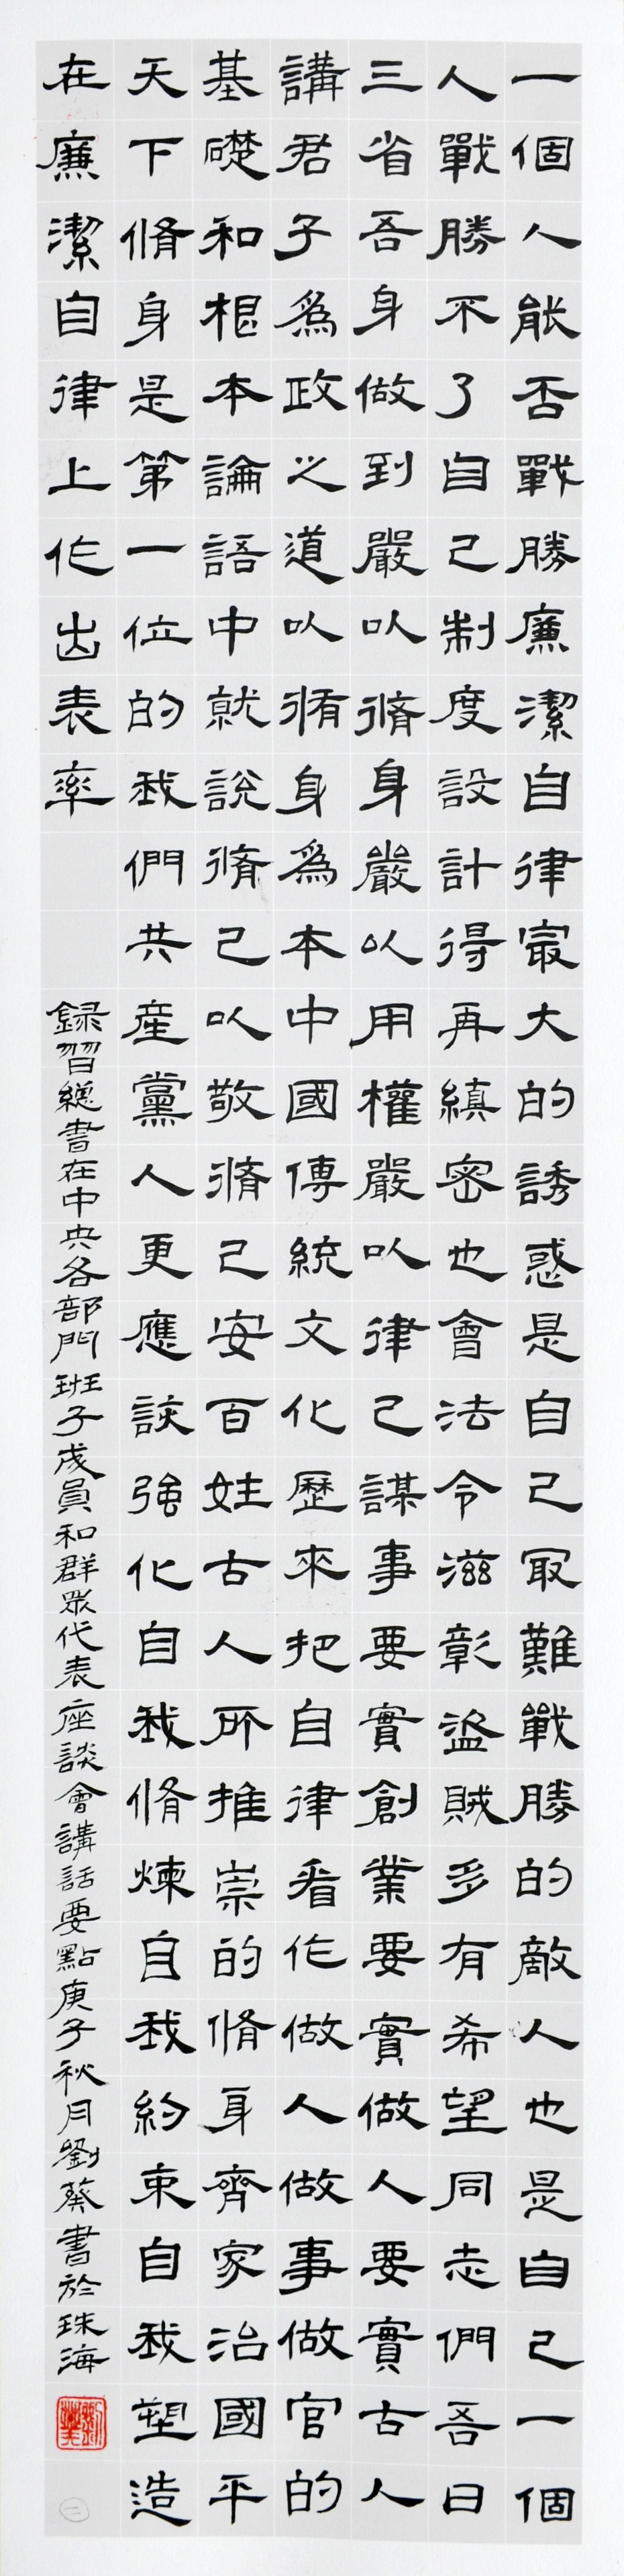 一個人能否戰勝廉潔自律最大的誘惑是自己最難戰勝的敵人也是自己一個
人戰勝不了自己制度設計得再縝密也會法令滋彰盜賊多有希望同志們吾日
三省吾身做到嚴以脩身嚴以用權嚴以律己謀事要實創業要實做人要實古人
講君子為政之道以脩身為本中國傳統文化歷來把自律看作做人做事做官的
基礎和根本論語中就說脩己以敬脩己安百姓古人所推崇的脩身齊家治國平
天下脩身是第一位的我們共產黨人更應該強化自我脩煉自我約束自我塑造
在廉潔自律上作出表率
錄習總書在中央各部門班子成員和群眾代表座談會講話要點庚子秋月劉葵書於珠海